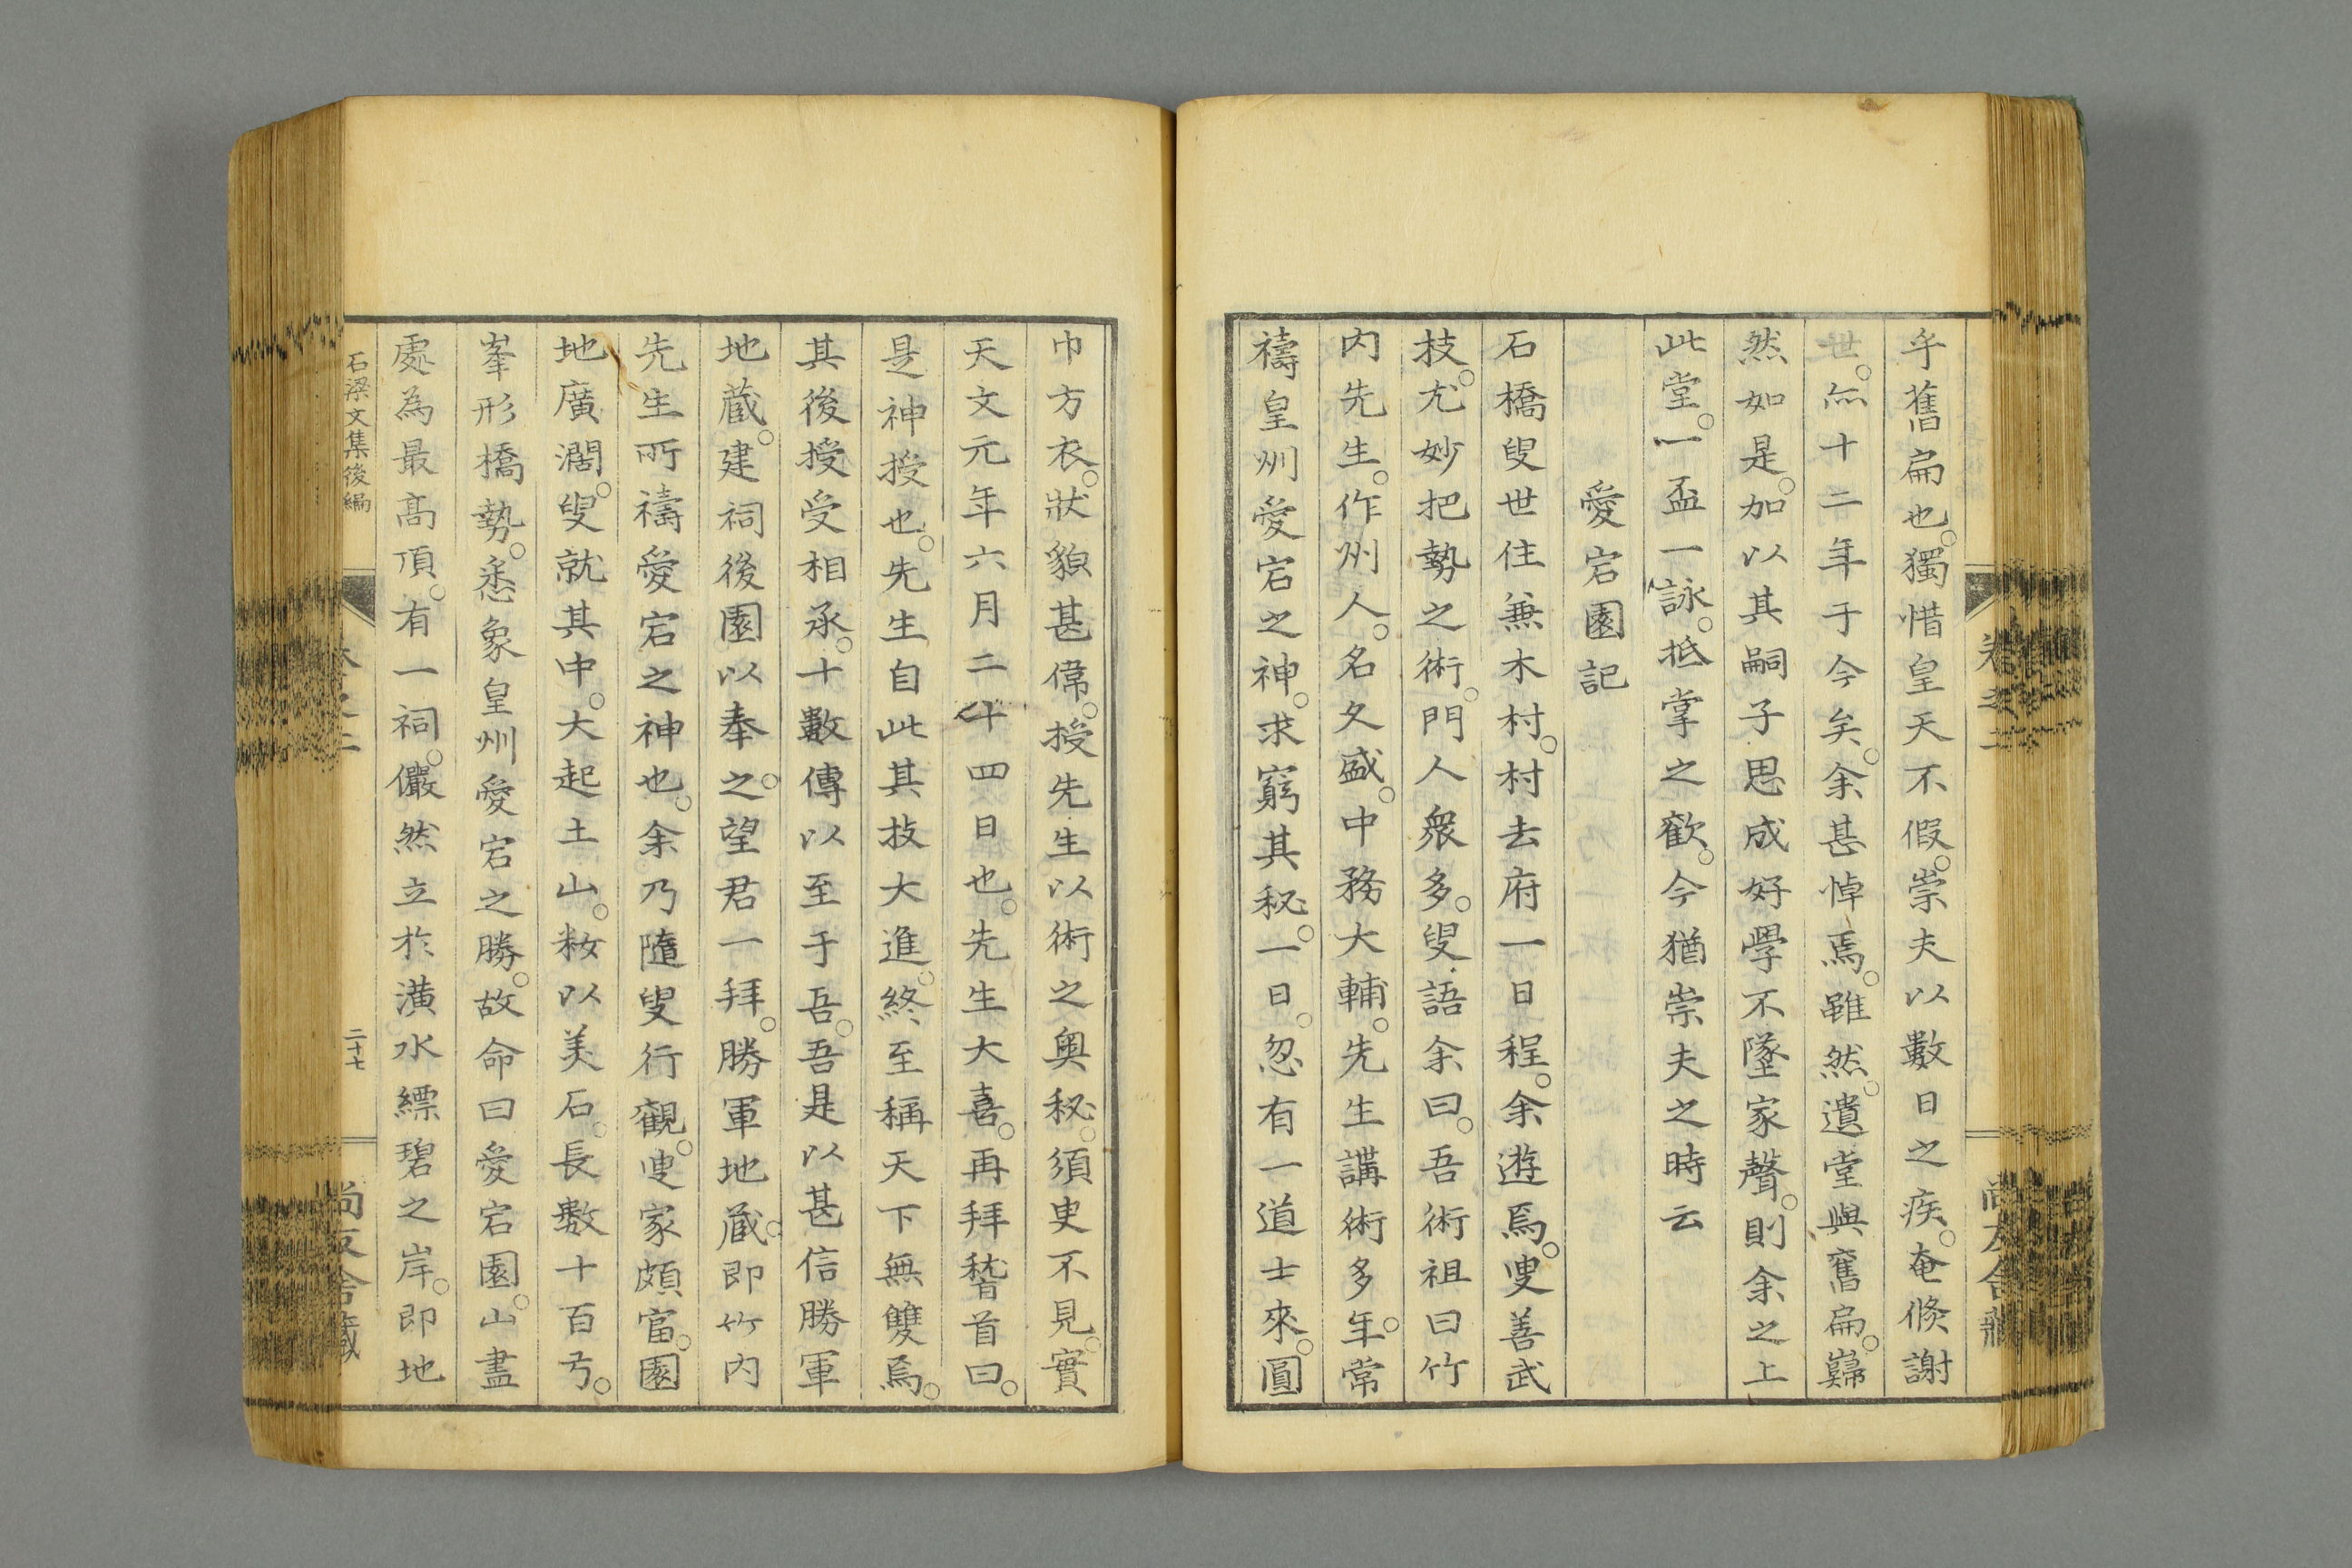 乎舊扁也。獨惜皇天不假。崇夫以數日之疾。奄倏謝
世。亦十二年于今矣。余甚悼焉。雖然。遺堂與舊扁。巋
然如是。加以其嗣子思成好學不墜家聲。則余之上
此堂。一盃一詠。抵掌之歡。今猶崇夫之時云
愛宕園記
石橋叟世住兼木村。村去府一日程。余遊焉。叟善武
技。尤妙把勢之術。門人衆多。叟語余曰。吾術祖曰竹
内先生。作州人。名久盛。中務大輔。先生講術多年。常
禱皇州愛宕之神。求窮其秘。一日。忽有一道士來。圓
巾方衣。狀貌甚偉。授先生以術之奥秘。須臾不見。實
天文元年六月二十四日也。先生大喜。再拜稽首曰。
是神授也。先生自此其技大進。終至稱天下無雙焉。
其後授受相承。十數傳以至于吾。吾是以甚信勝軍
地蔵。建祠後園以奉之。望君一拜。勝軍地蔵。即竹内
先生所禱愛宕之神也。余乃隨叟行觀。叟家頗富。園
地廣濶。叟就其中。大起土山。敉以美石。長數十百丐。
峯形橋勢。悉象皇州愛宕之勝。故命曰愛宕園。山盡
處為最高頂。有一祠。儼然立於潢水縹碧之岸。即地
石梁文集後編
卷之二
二十七
尚友舎藏